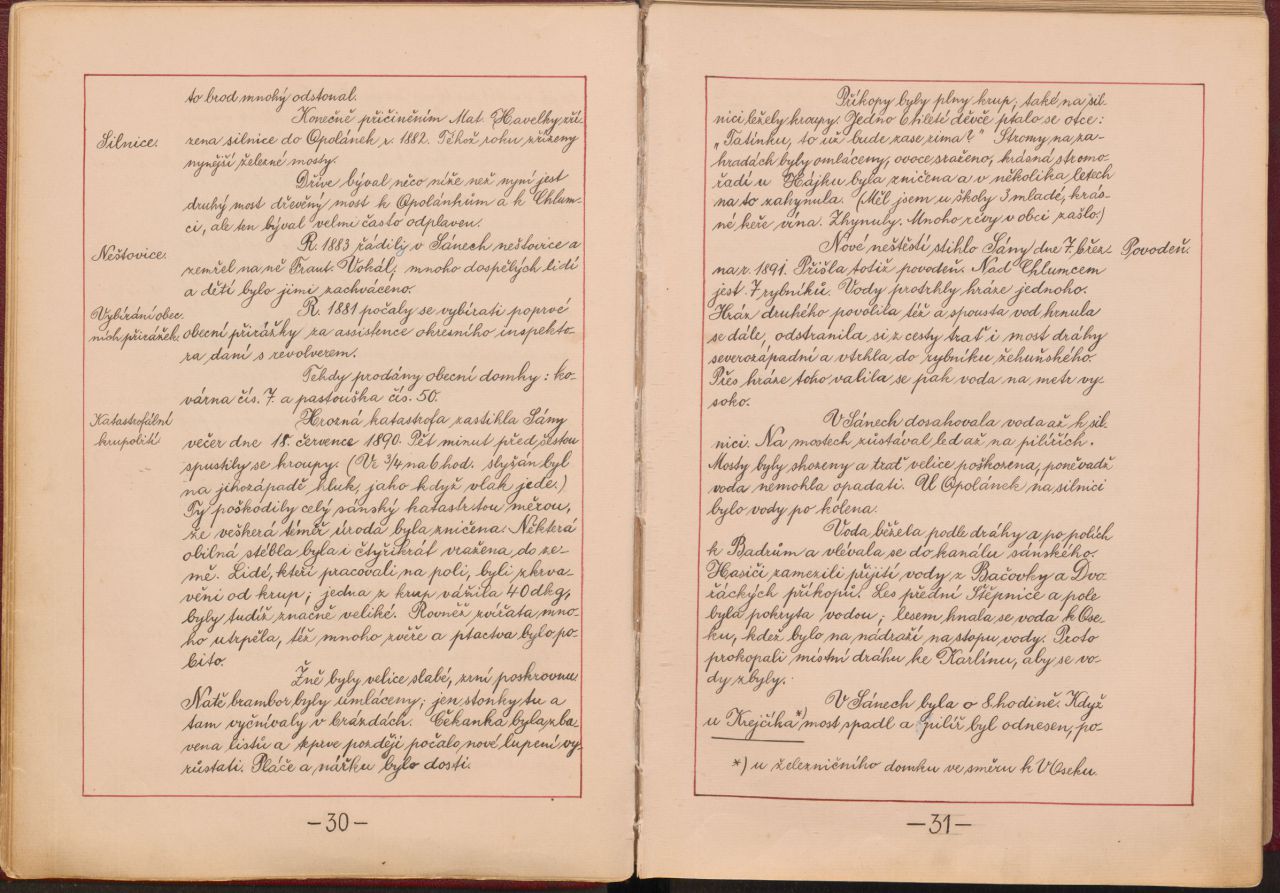 to brod mnohý odstonal.
Konečně přičiněním Mat. Havelky zří-
Silnice.
zena silnice do Opolánek r. 1882. Téhož roku zřízeny
nynější železné mosty.
Dříve býval něco níže než nyní jest
druhý most dřevěný most k Opolánkům a k Chlum-
ci, ale ten býval velmi často odplaven.
Neštovice.
R. 1883 řádily v Sánech neštovice a
zemřel na ně Frant. Vokál, mnoho dospělých lidí
a dětí bylo jimi zachváceno.
Vybírání obec-
ních přirážek.
R. 1881 počaly se vybírati poprvé
obecní přirážky za assistence okresního inspekto-
ra daní s revolverem.
Tehdy prodány obecní domky: ko-
várna čís. 7. a pastouška čís. 50.
Katastrofální
krupobití
Hrozná katastrofa zastihla Sány
večer dne 18. července 1890. Pět minut před šestou
spustily se kroupy. (Ve 3/4 na 6 hod. slyšán byl
na jihozápadě hluk, jako když vlak jede.)
Ty poškodily celý sánský katastr tou měrou,
že veškerá téměř úroda byla zničena. Některá
obilná stébla byla i čtyřikrát vražena do ze-
mě. Lidé, kteří pracovali na poli, byli zkrva-
věni od krup; jedna z krup vážila 40 dkg,
byly tudíž značně veliké. Rovněž zvířata mno-
ho utrpěla, též mnoho zvěře a ptactva bylo po-
bito.
Žně byly velice slabé, zrní poskrovnu.
Natě brambor byly umláceny; jen stonky tu a
tam vyčnívaly v brázdách. Čekanka byla zba-
vena listů a teprve později počalo nové lupení vy-
růstati. Pláče a nářku bylo dosti.
—30—
Příkopy byly plny krup; také na sil-
nici ležely kroupy. Jedno 6 tileté děvče ptalo se otce:
„Tatínku, to už bude zase zima?" Stromy na za-
hradách byly omláceny, ovoce sraženo, krásná stromo-
řadí u Hájku byla zničena a v několika letech
na to zahynula. (Měl jsem u školy 3 mladé, krás-
né keře vína. Zhynuly. Mnoho révy v obci zašlo.)
Nové neštěstí stihlo Sány dne 7. břez-
Povodeň.
na r. 1891. Přišla totiž povodeň. Nad Chlumcem
jest 7 rybníků. Vody protrhly hráze jednoho.
Hráz druhého povolila též a spousta vod hrnula
se dále, odstranila si z cesty trať i most dráhy
severozápadní a vtrhla do rybníku žehuňského.
Přes hráze toho valila se pak voda na metr vy-
soko.
V Sánech dosahovala voda až k sil-
nici. Na mostech zůstával led až na pilířích.
Mosty byly shozeny a trať velice poškozena, poněvadž
voda nemohla opadati. U Opolánek na silnici
bylo vody po kolena.
Voda běžela podle dráhy a po polích
k Badrům a vlévala se do kanálu sánského.
Hasiči zamezili přijití vody z Bačovky a Dvo-
řáckých příkopů. Les přední Štěpnice a pole
byla pokryta vodou; lesem hnala se voda k Ose-
ku, kdež bylo na nádraží na stopu vody. Proto
prokopali místní dráhu ke Karlínu, aby se vo-
dy zbyly.
V Sánech byla o 8 hodině. Když
u Krejčíha*) most spadl a pilíř byl odnesen, po-
*) u železničního domku ve směru k V. Oseku.
—31—